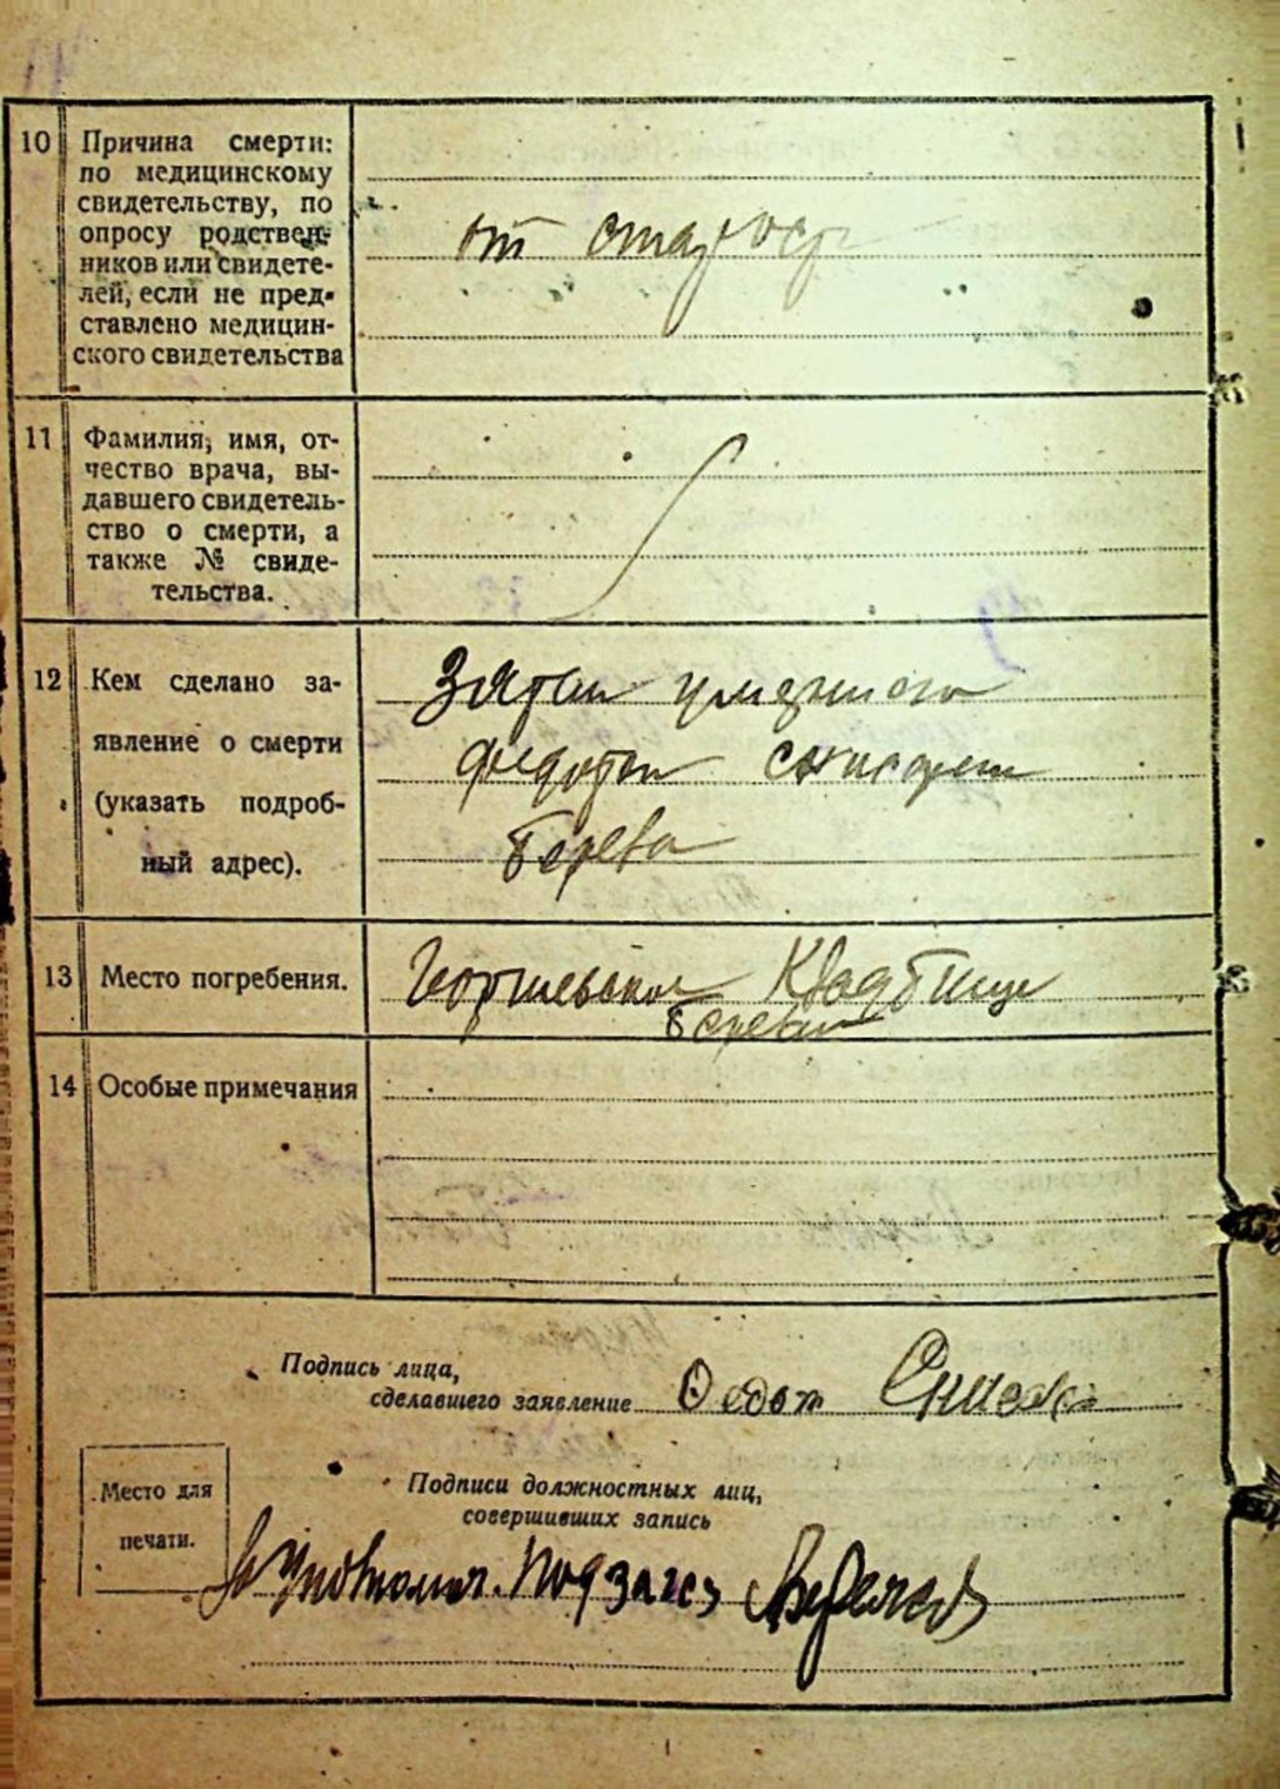 10 Причина смерти:
по медицинскому
свидетельству, по
опросу родствен-
ников или свидете-
лей, если не пред-
ставлено медицин-
ского свидетельства
от старост
11 Фамилия, имя, от-
чество врача, вы-
давшего свидетель-
ство о смерти, а
также № свиде-
тельства.
12 Кем сделано за-
явление о смерти
(указать подроб-
ный адрес).
Зятем
Федотом
13 Место погребения.
Кладбище
14 Особые примечания
Подпись лица,
сделавшего заявление Федот
Место для
печати.
Подписи должностных лиц,
совершивших запись